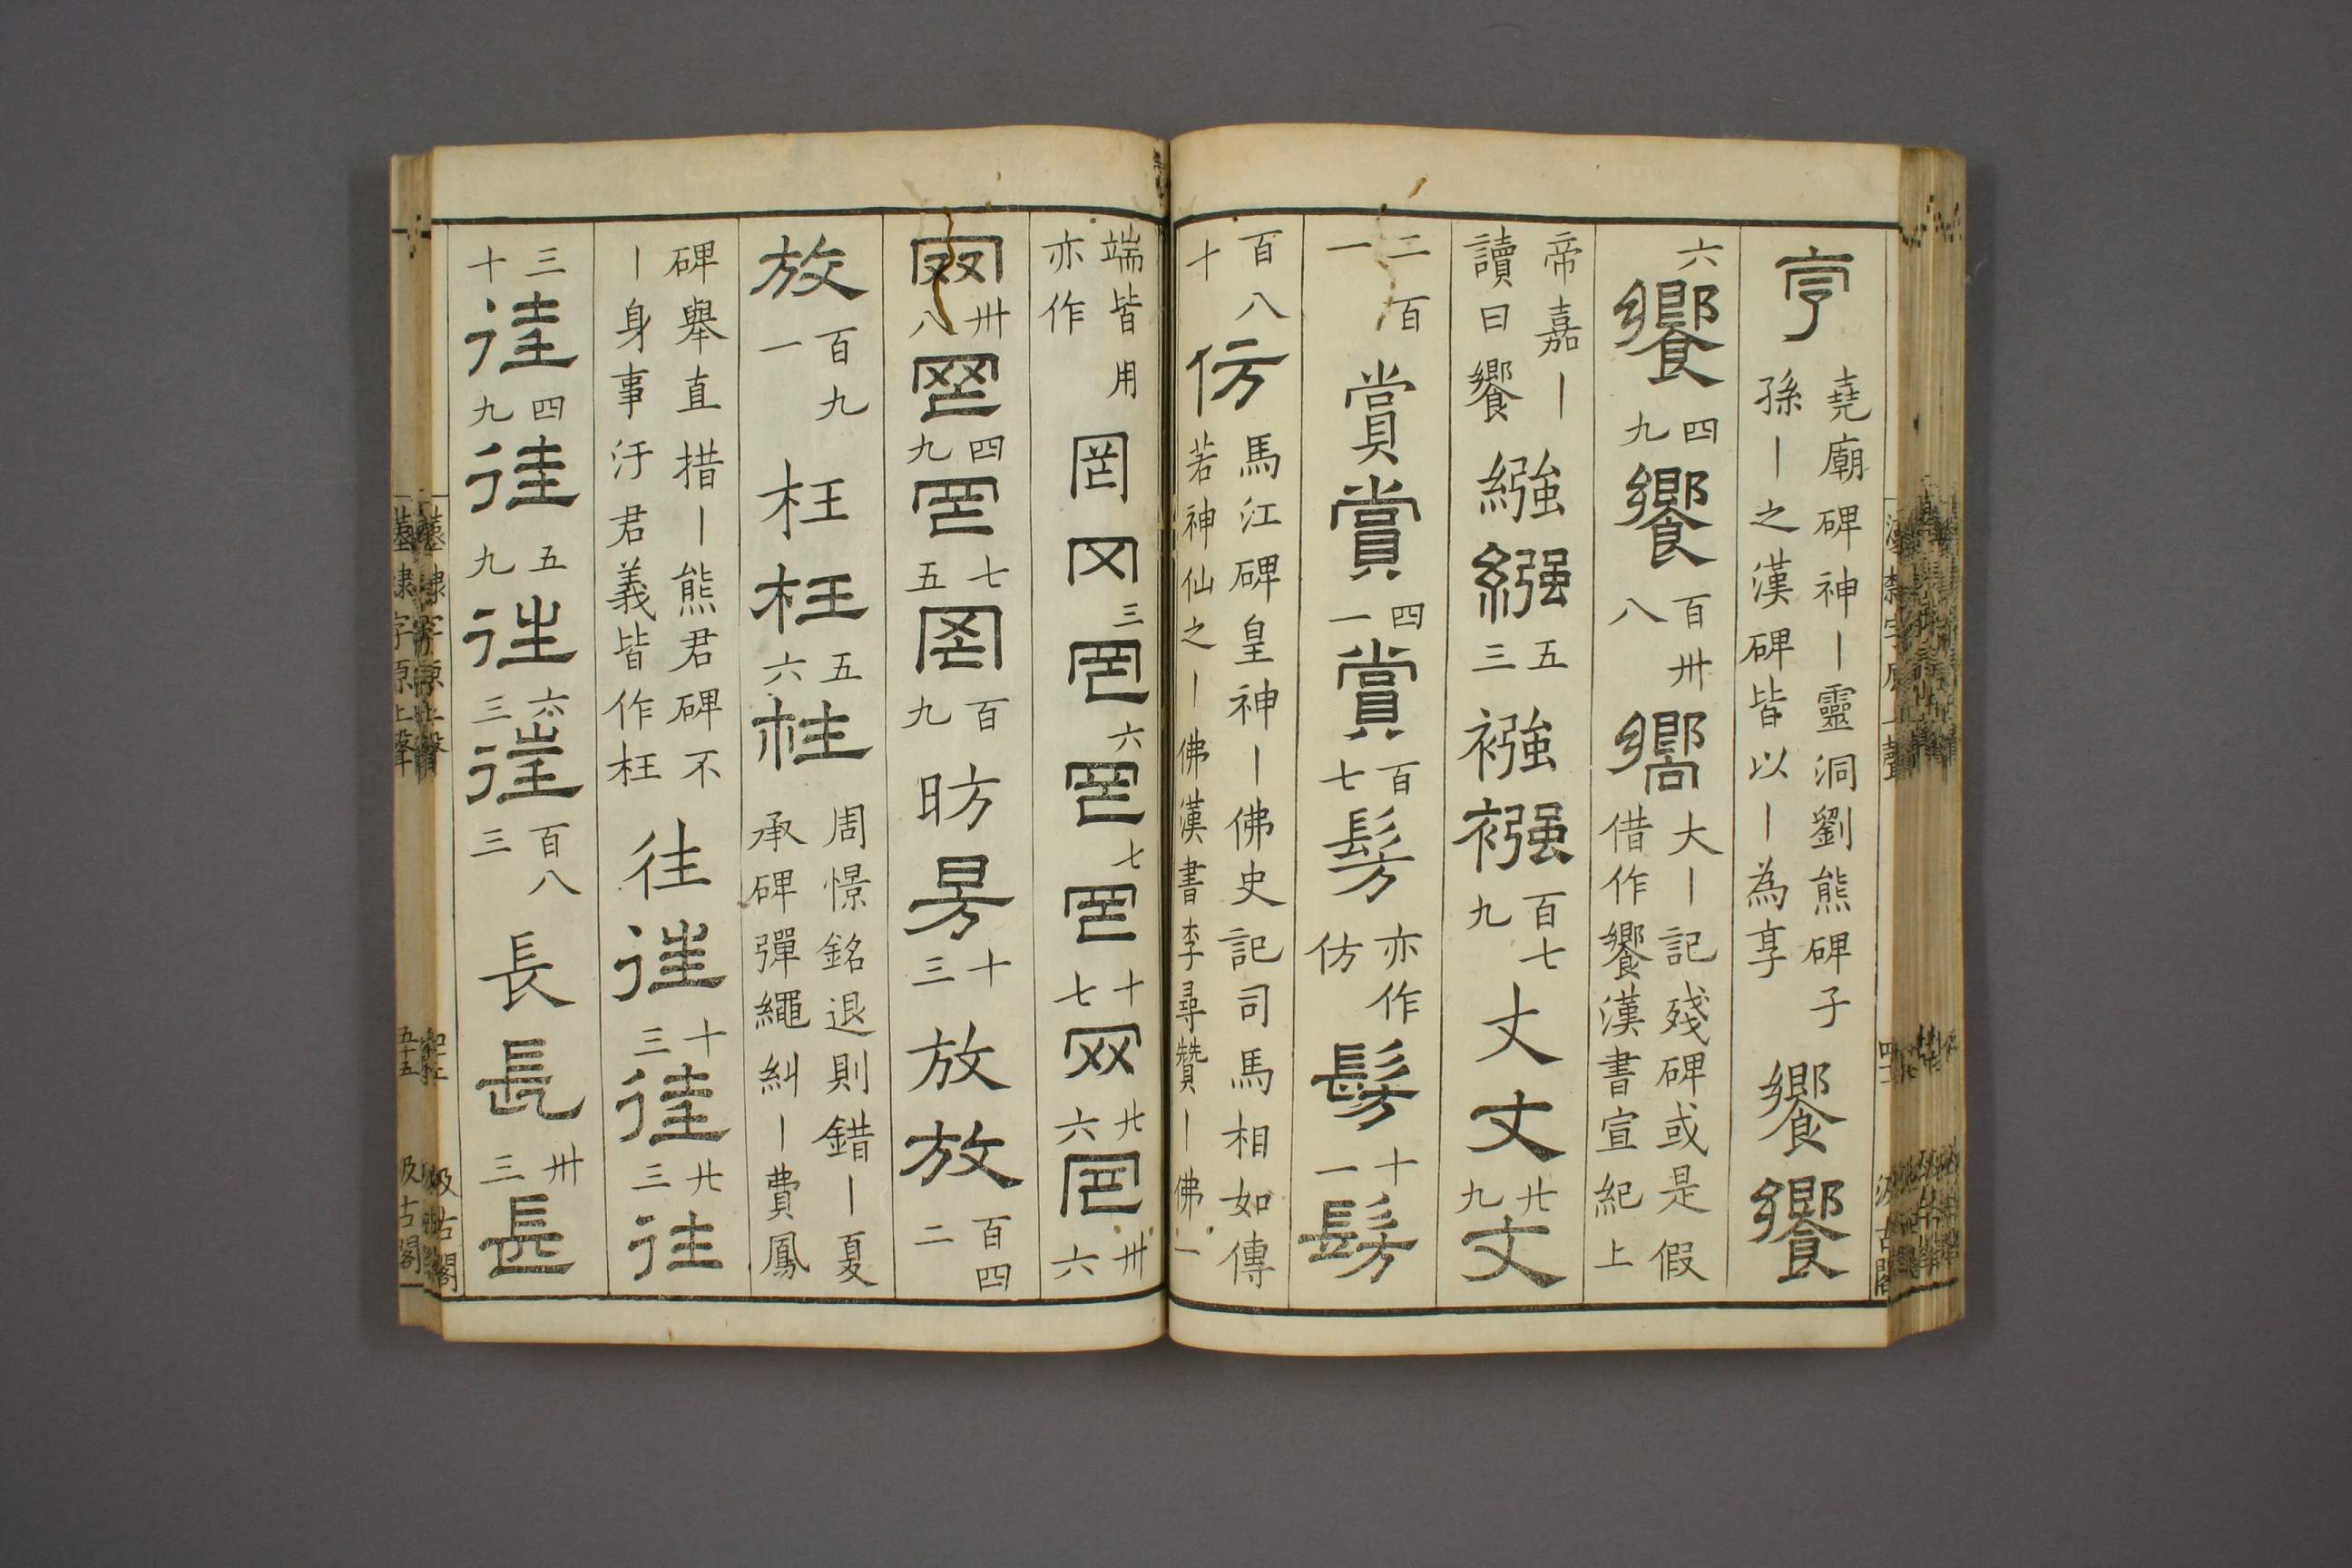 亨 堯廟碑神丨靈洞劉熊碑子孫丨之漢碑皆以丨為享 饗饗
六 饗 四九 饗 百卅八 嚮 大丨記殘碑或是假借作饗漢書宣紀上
帝嘉丨讀曰饗 繈繈 五三 襁襁 百七九 丈丈 廿九 丈
二百一 賞賞 四一 賞 百七 髣 亦作仿 髣 十一 髣
百八十 仿 馬江碑皇神丨佛史記司馬相如傳若神仙之丨佛漢書李尋贊丨佛一
端皆用亦作 罔 三 六 七 十七 网 廿六 卅六
卅八 四九 七五 百九 昉昉 十三 放放 百四二
放 百九一 枉枉 五六 枉 周憬銘退則錯丨夏承碑彈繩糾丨費鳳
碑舉直措丨熊君碑不丨身事汙君義皆作枉 往往 十三 往 廿三 往
三十 往 四九 往 五九 往 六三 往 百八三 長長 卅三 長
漢隸字源上聲
汲古閣
漢隸字源上聲
五十五
汲古閣